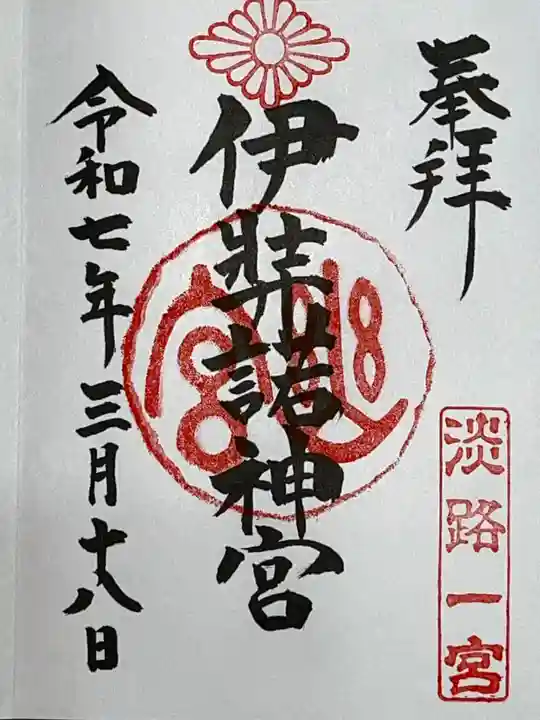 奉拝
淡路一宮
伊弉諾神宮
令和七年三月十八日